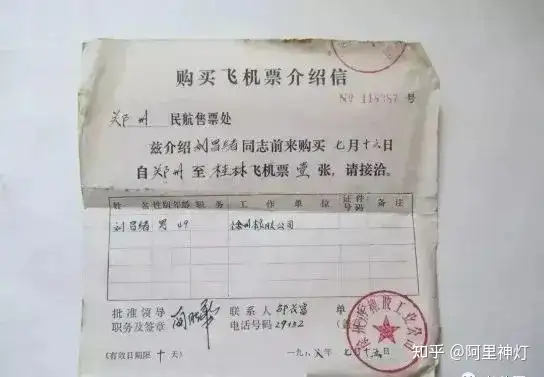 购买飞机票介绍信
№ 118387 号
郑州 民航售票处
兹介绍 刘昌绪 同志前来购买 七月十六日
自 郑州 至 桂林 飞机票 壹 张，请接洽。
姓名 性别 年龄 职务 工作单位 证件号码 备注
刘昌绪 男 49
批准领导 联系人 单
职务及签章 电话号码 29132
(有效日期限 十 天) 一九八 年 七月十 日
知乎 @阿里神灯